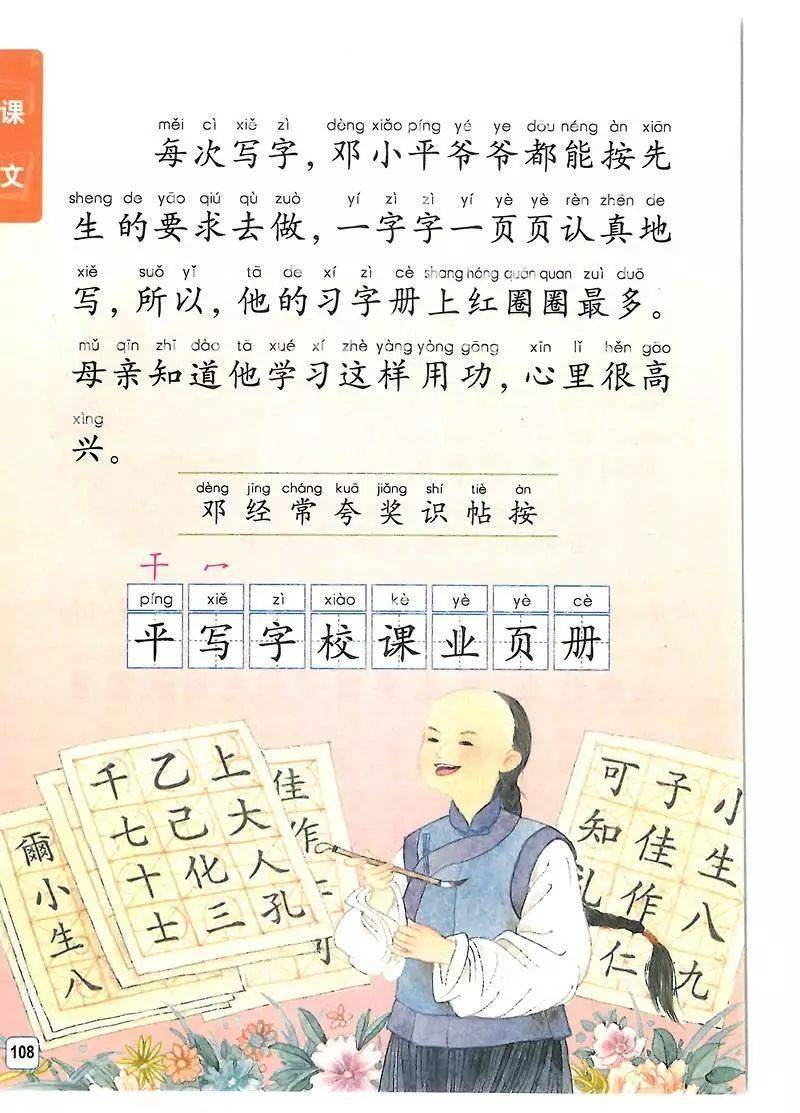 课
文
měi cì xiě zì dèng xiǎo píng yé ye dōu néng àn xiān
每次写字，邓小平爷爷都能按先
sheng de yāo qiú qù zuò yí zì zì yí yè yè rèn zhēn de
生的要求去做，一字字一页页认真地
xiě suǒ yǐ tā de xí zì cè shang hóng quān quan zuì duō
写，所以，他的习字册上红圈圈最多。
mǔ qīn zhī dào tā xué xí zhè yàng yòng gōng xīn lǐ hěn gāo
母亲知道他学习这样用功，心里很高
xìng
兴。
dèng jīng cháng kuā jiǎng shí tiè àn
邓 经 常 夸 奖 识 帖 按
píng xiě zì xiào kè yè yè cè
平 写 字 校 课 业 页 册
爾
小
生
八
千 乙 上
七 己 大
十 化 人
士 三 孔
佳
作
可 子 小
知 佳 生
作 八
仁 九
108